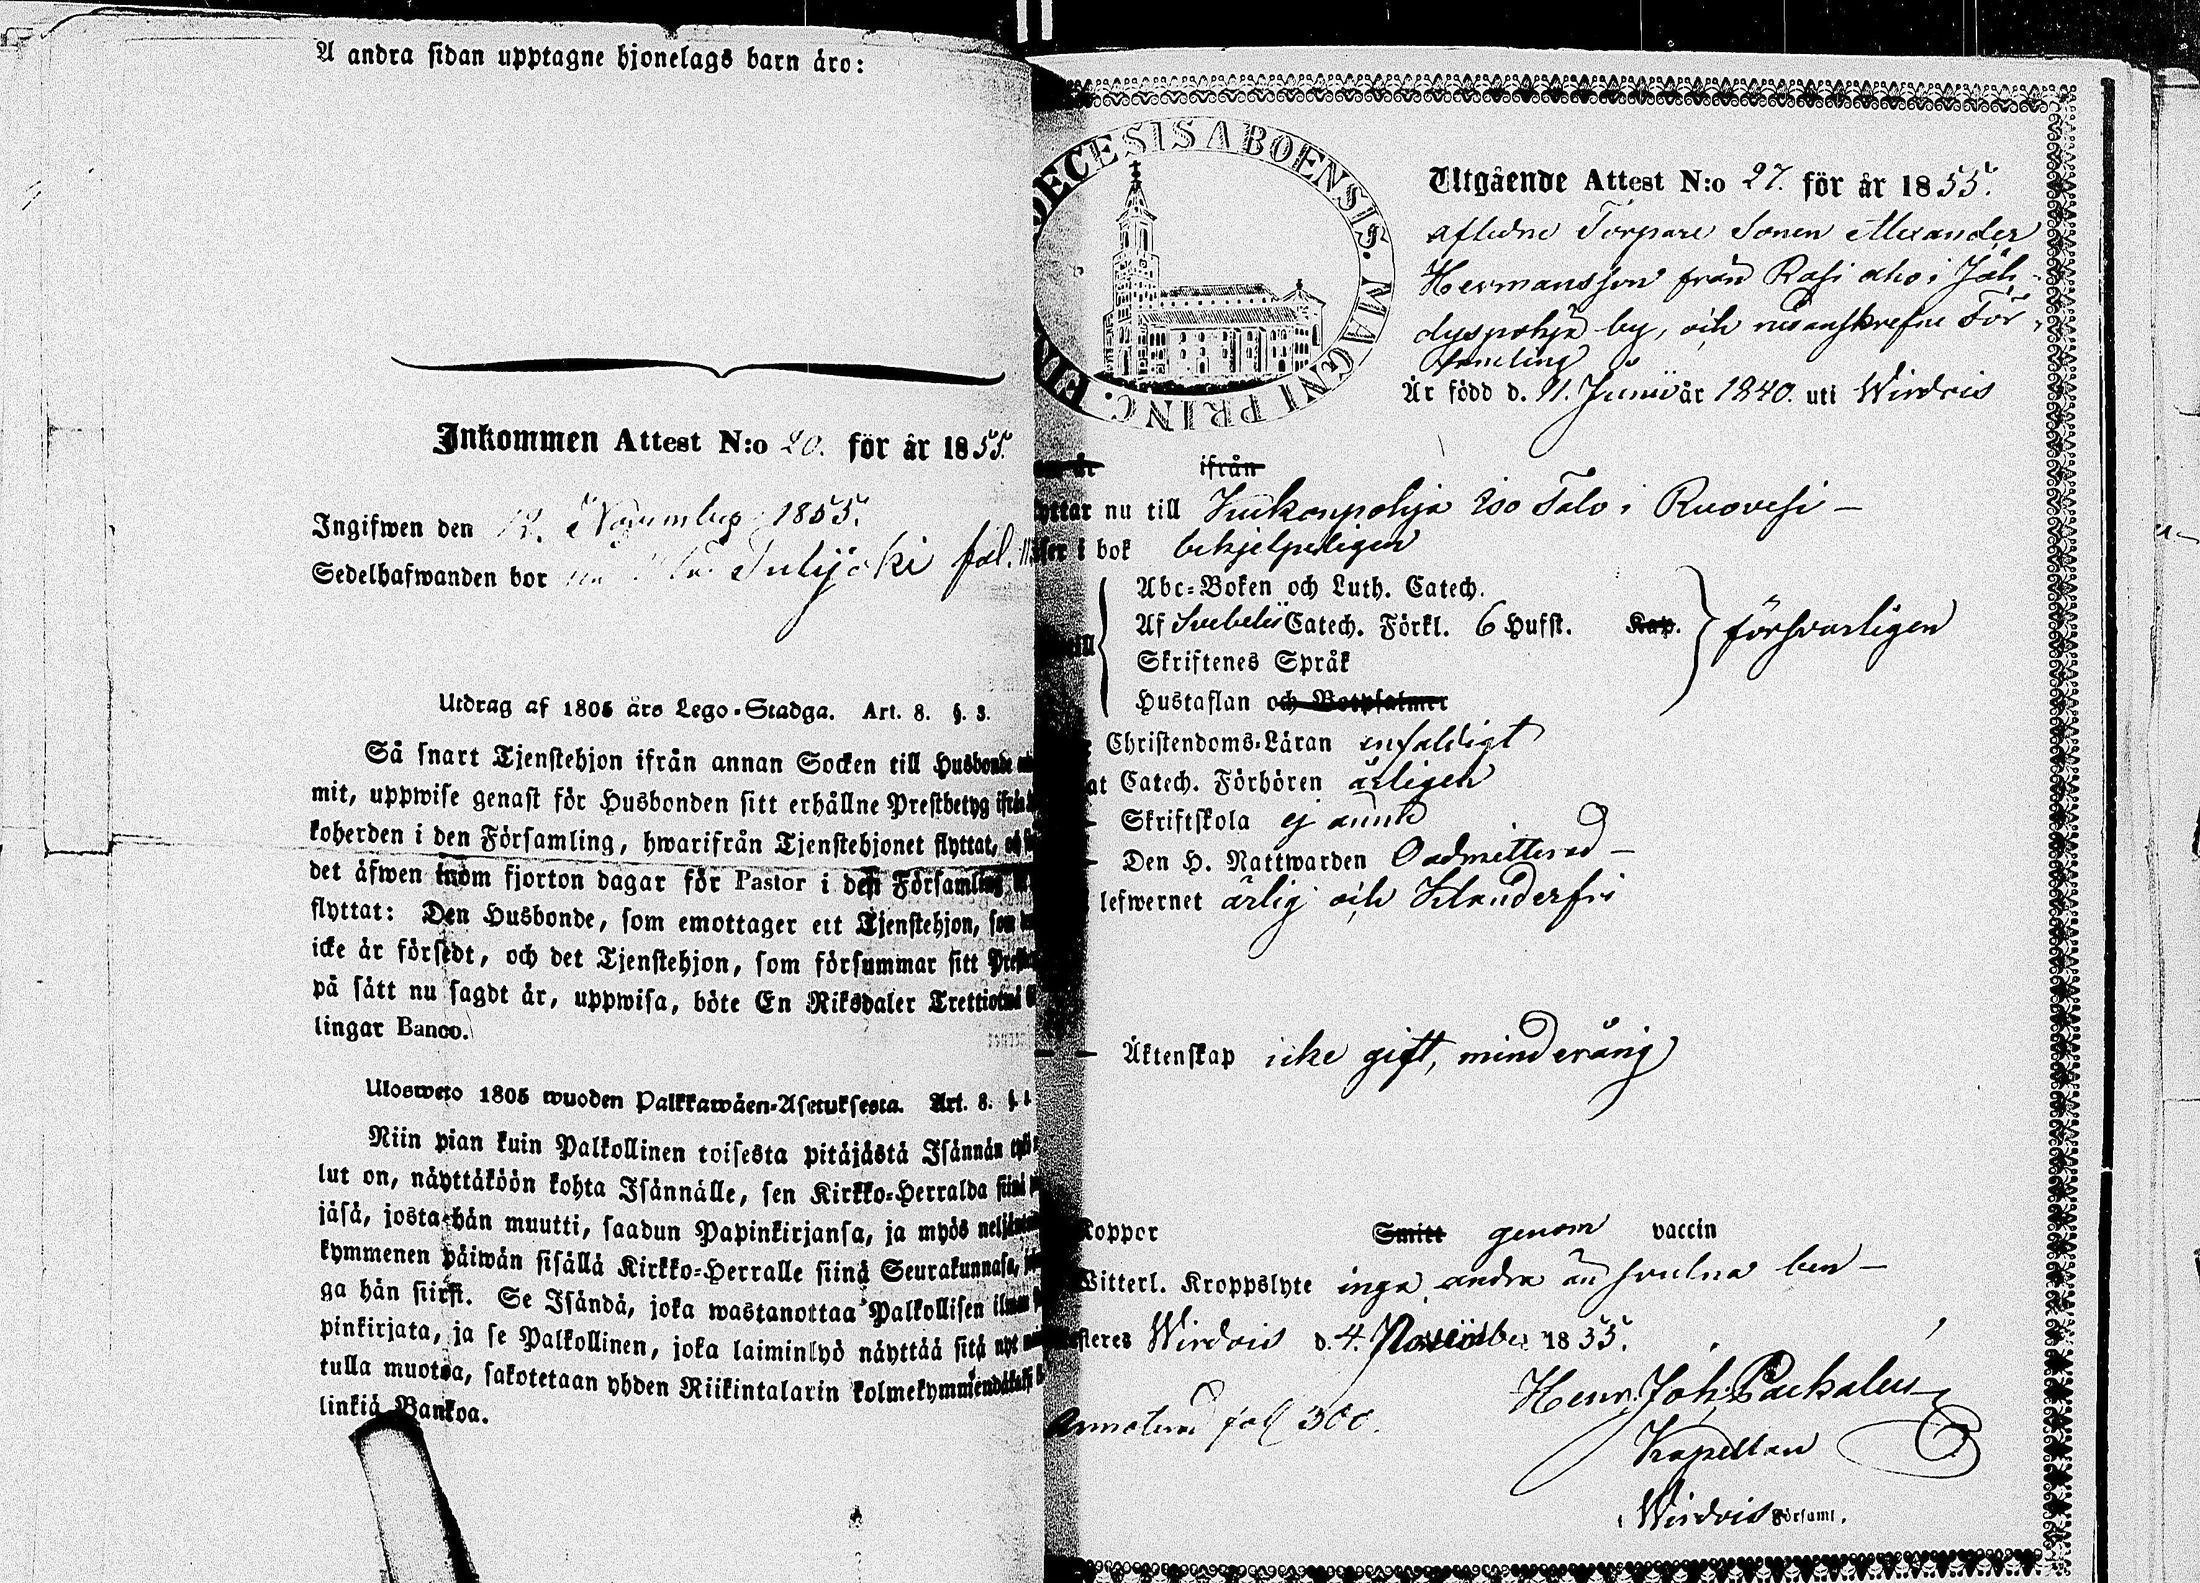 A andra sidan upptagne hjonelags barn äro:
Inkommen Attest N:o 20. för år 1855.
Ingifwen den 12. November 1855.
Sedelhafwanden bor fol.
Utdrag af 1805 års Lego-Stadga. Art. 8. §. 3.
Så snart Tjenstehjon ifrån annan Socken till Husbonde
mit, uppwise genast för Husbonden sitt erhållne Prestbetyg ifrån
koherden i den Församling, hwarifrån Tjenstehjonet flyttat,
det äfwen inom fjorton dagar för Pastor i den Församling
flyttat: Den Husbonde, som emottager ett Tjenstehjon, som
icke är försedt, och det Tjenstehjon, som försummar sitt
på sätt nu sagdt är, uppwisa, böte En Riksdaler Trettiotwå
lingar Banco.
Ulosweto 1805 wuoden Palkkawäen-Asetuksesta. Art. 8. §.
Niin pian kuin Palkollinen toisesta pitäjästä Isännän
lut on, näyttäköön kohta Isännälle, sen Kirkko-Herralda siinä
jäsä, josta hän muutti, saadun Papinkirjansa, ja myös
kymmenen päiwän sisällä Kirkko-Herralle siinä Seurakunnasa,
ga hän siirsi. Se Isändä, joka wastanottaa Palkollisen ilman
pinkirjata, ja se Palkollinen, joka laiminlyö näyttää sitä nyt
tulla muotoa, sakotetaan yhden Riikintalarin
linkiä Bankoa.
DIOECESIS ABOENSIS. MAGNI PRINC. FIN
Utgående Attest N:o 27. för år 1855.
aflidne Torpare Sonen Alexander
Hermansson från Rasi aho i Jäh-
dyspohja by, och ofvanskrefne För-
samling
Är född d. 11. Junii år 1840. uti Wirdois
ifrån
yttar nu till Kukonpohja Iso Talo i Ruovesi —
äser i bok behjelpeligen
Abc-Boken och Luth. Catech.
Af Svebelii Catech. Förkl. 6 Hufst. Kap. försvarligen
Skriftenes Språk
Hustaflan och Botpsalmer
Christendoms-Läran enfaldigt
at Catech. Förhören årligen
Skriftskola ej ännu
Den H. Nattwarden Oadmitterad —
lefwernet ärlig och Klanderfri
Äktenskap icke gift, minderårig
Koppor Smitt genom vaccin
Witterl. Kroppslyte inga andra än svulna ben —
esteres Wirdois d. 4. November 1855.
Henr. Joh. Packalen
Annoterad fol 300.
Kapellan
Wirdois Församl.